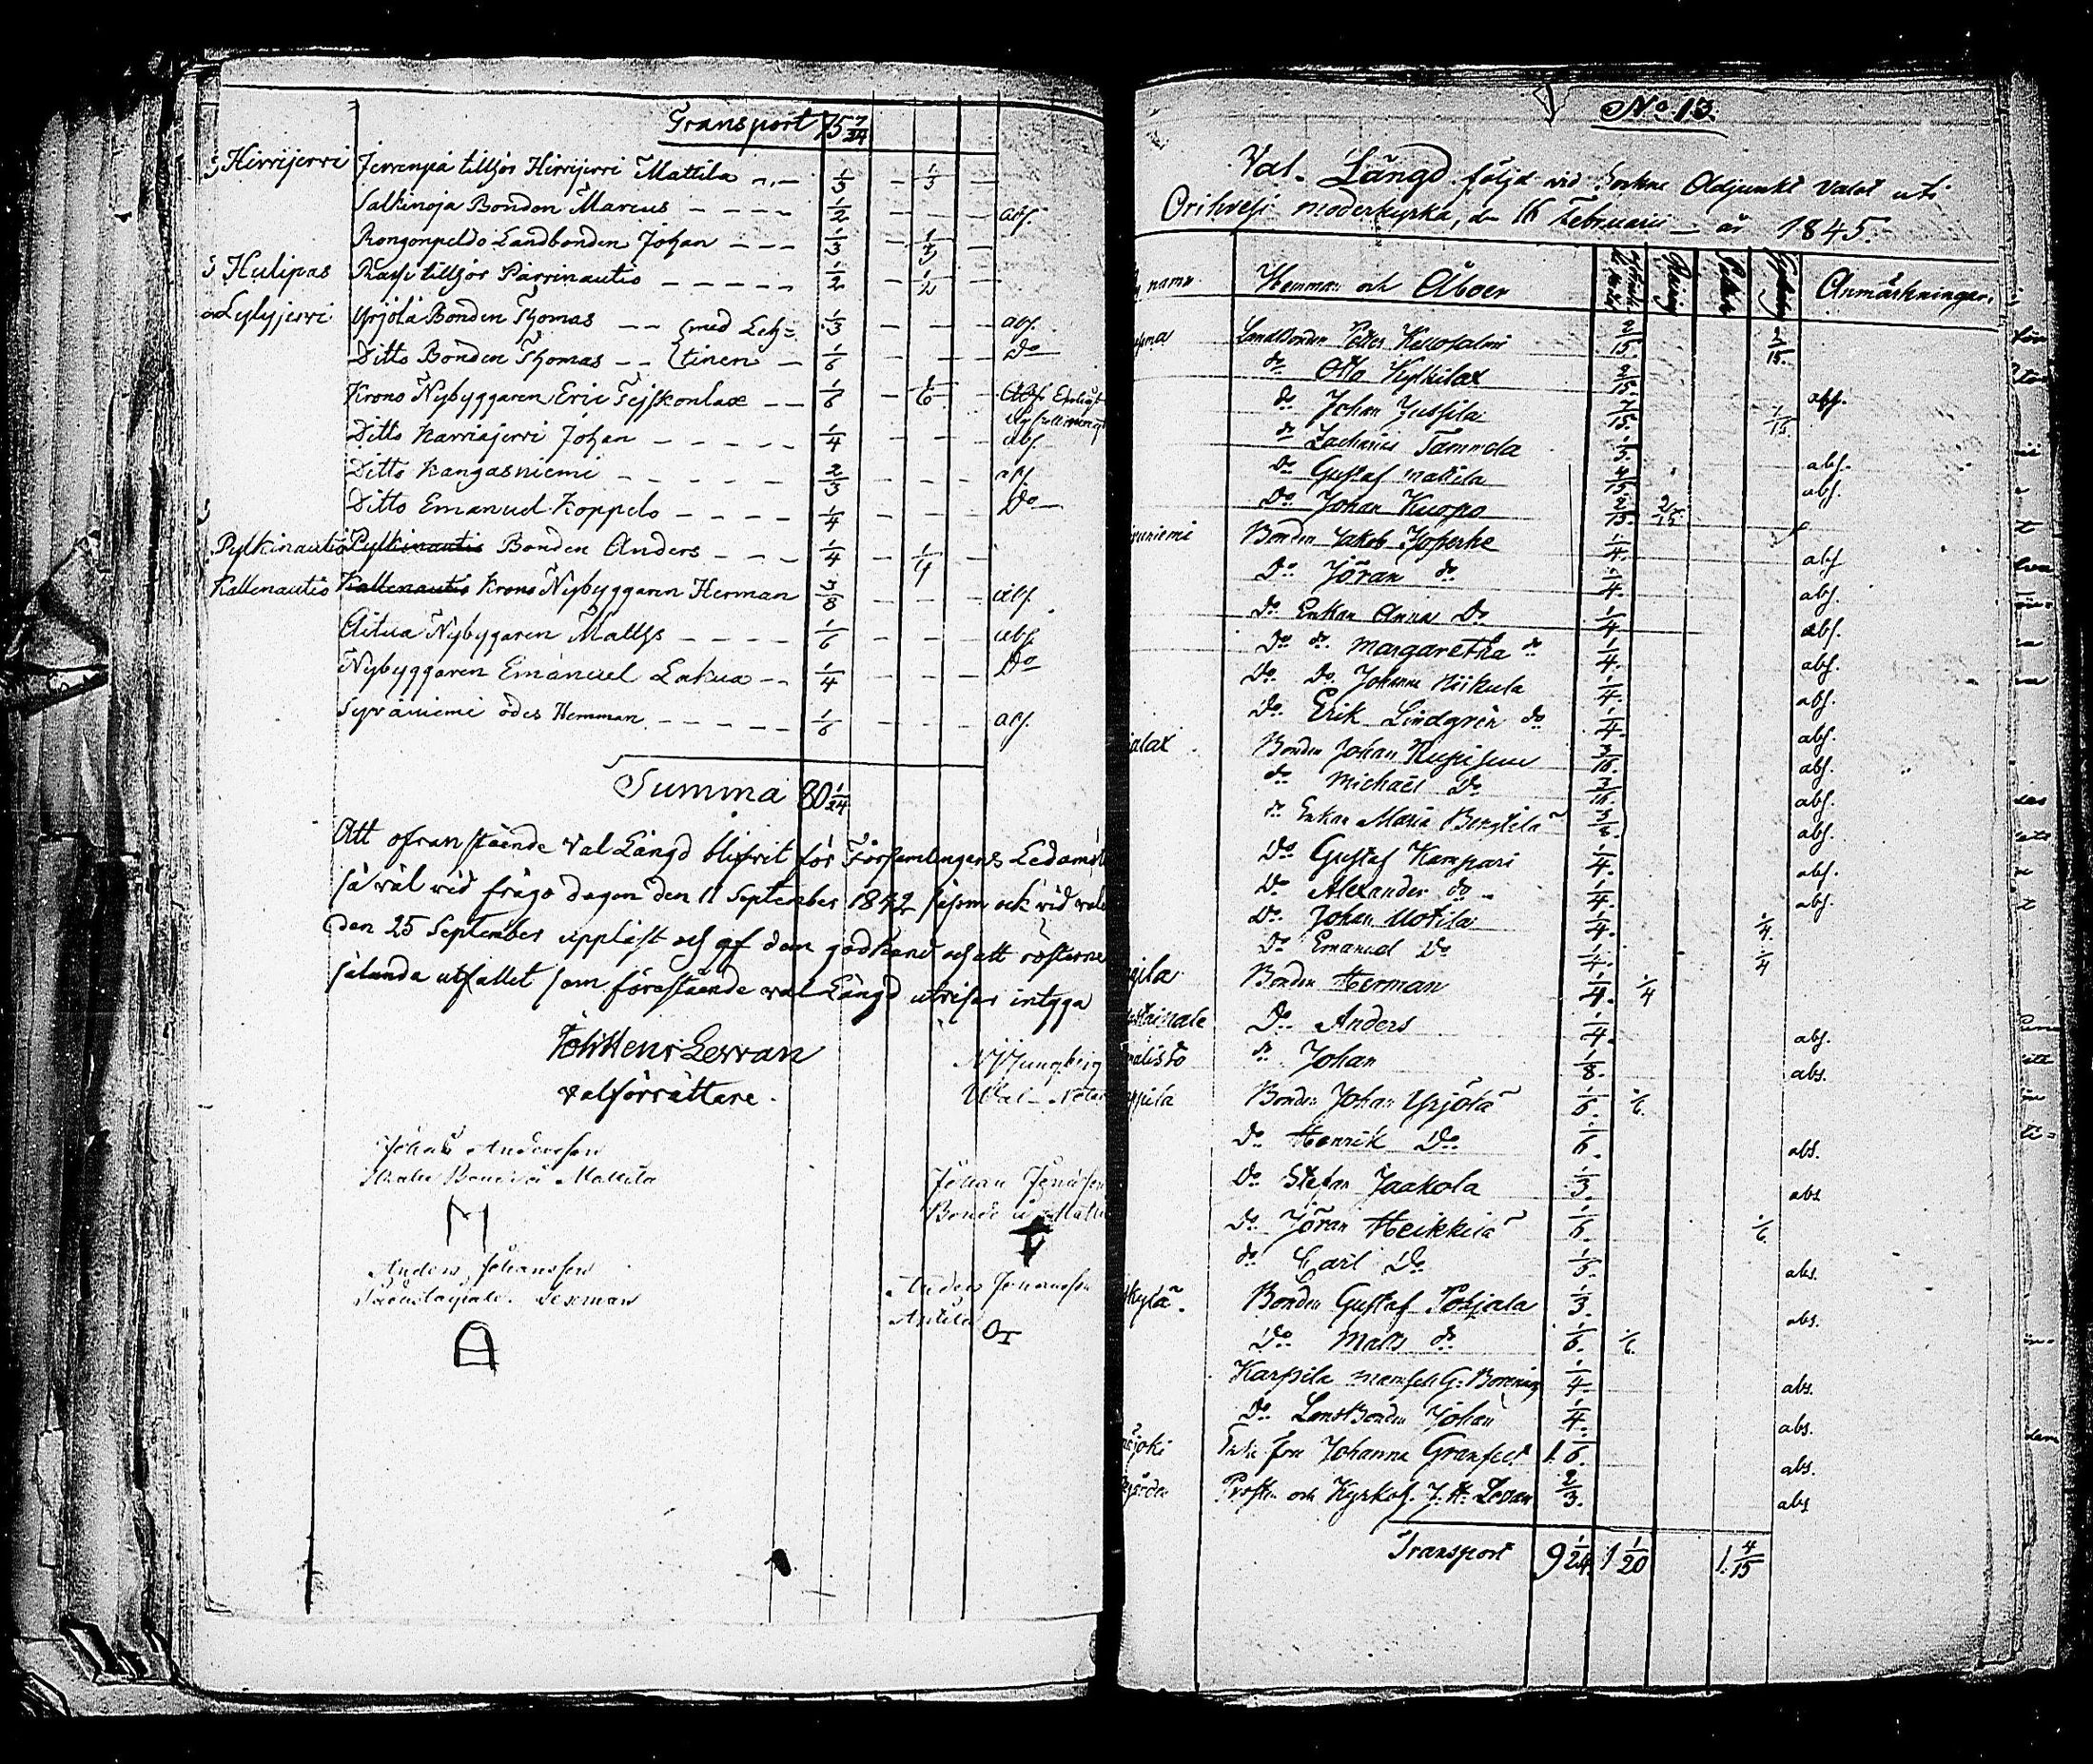 Transport 75 7/24
Hirrijerri Jerrenpä tillhör Hirrijerri Mattila 1/3 1/3
Salkinoja Bonden Marcus 1/2 abs.
Rongonpeldo Landbonden Johan 1/3 1/3
Hulipas Rassi tillhör Pärrinautio 1/2 1/2
Lylyjerri Yrjölä Bonden Thomas (med Leh= 1/3 abs.
Ditto Bonden Thomas (tinen 1/6 Do
Krono Nybyggaren Eric 1/6 1/6
Ditto Karriajerri Johan 1/4 abs
Ditto Kangasniemi 2/3 abs
Ditto Emanuel Koppelo 1/4 Do
Pylkinautio Pylkinautio Bonden Anders 1/4 1/4
Kallenautio Kallenautio Krono Nybyggaren Herman 3/8 abs.
Aitua Nybygaren Matths 1/6 abs.
Nybyggaren Emanuel Lakua 1/4 Do
Syväniemi ödes Hemman 1/6 abs.
Summa 80 1/24
Att ofvanstående Val Längd blifvit för Församlingens Ledamöt
så väl vid frågo dagen den 11 September 1842 såsom ock vid vale
den 25 September uppläst och af dem godkänd och att rösterne
sålunda utfallet som förestående val Längd utvisar intyga
Joh Henr Levvan
Valförrättare.
N Ljungberg
Wal-Notar
Johan Andersson
Bonde i Mattila
M
Johan
Bonde
Anders Johansson
Lexman
A
Anders Johansson
Anttila
No 13.
Val-Längd följd vid Sockne Adjunkt Valet uti
Orihvesi moderkyrka, den 16 Februarii år 1845.
namn. Hemman och Åboer Anmärkningar.
Landbonden Petter Kuopalini 2/15. 2/15.
do Otto Kylkilax 2/15. abs.
do Johan Jussila 2/15. 1/15.
do Zacharias Tammola 1/5. abs.
do Gustaf Mattila 4/15 abs.
Do Johan Kuopo 2/15. 2/15.
niemi Bonden Jakob 1/4. abs
Do Jöran do 1/4. abs.
do Enkan Anna Do 1/4 abs.
Do do. Margaretha do 1/4. abs.
Do. Do. Johanna Niikula 1/4. abs.
Do. Erik Lindgrén do 1/4. abs.
alax Bonden Johan 3/16. abs.
do Michaël Do 3/16. abs.
do Enkan Maria Benttilä 3/8. abs.
Do Gustaf Kampari 1/4. abs.
Do Alexander do 1/4. abs.
Do. Johan Uotila 1/4. 1/4.
Do Emanuel Do 1/4. 1/4
Bonden Herman 1/4. 1/4
Do Anders 1/4. abs.
do Johan 1/8. abs.
Bonden Johan Yrjölä 1/6. 1/6.
Do Henrik Do 1/6. abs.
Do Stefan Jaakola 1/3. abs
Do Jöran Heikkilä 1/6. 1/6.
do Carl Do 1/3. abs.
kylä. Bonden Gustaf Pohjala 1/3. abs.
Do Matts do 1/6. 1/6.
Karpila mamsell G: 1/4. abs.
Do Lansbonden Johan 1/4. abs.
joki Enke fru Johanna Granfelt 1. 1/6. abs.
Prosten och Kyrkoh. J. H: Levan 2/3. abs
Transport 9 1/24. 1 1/20 1. 4/15